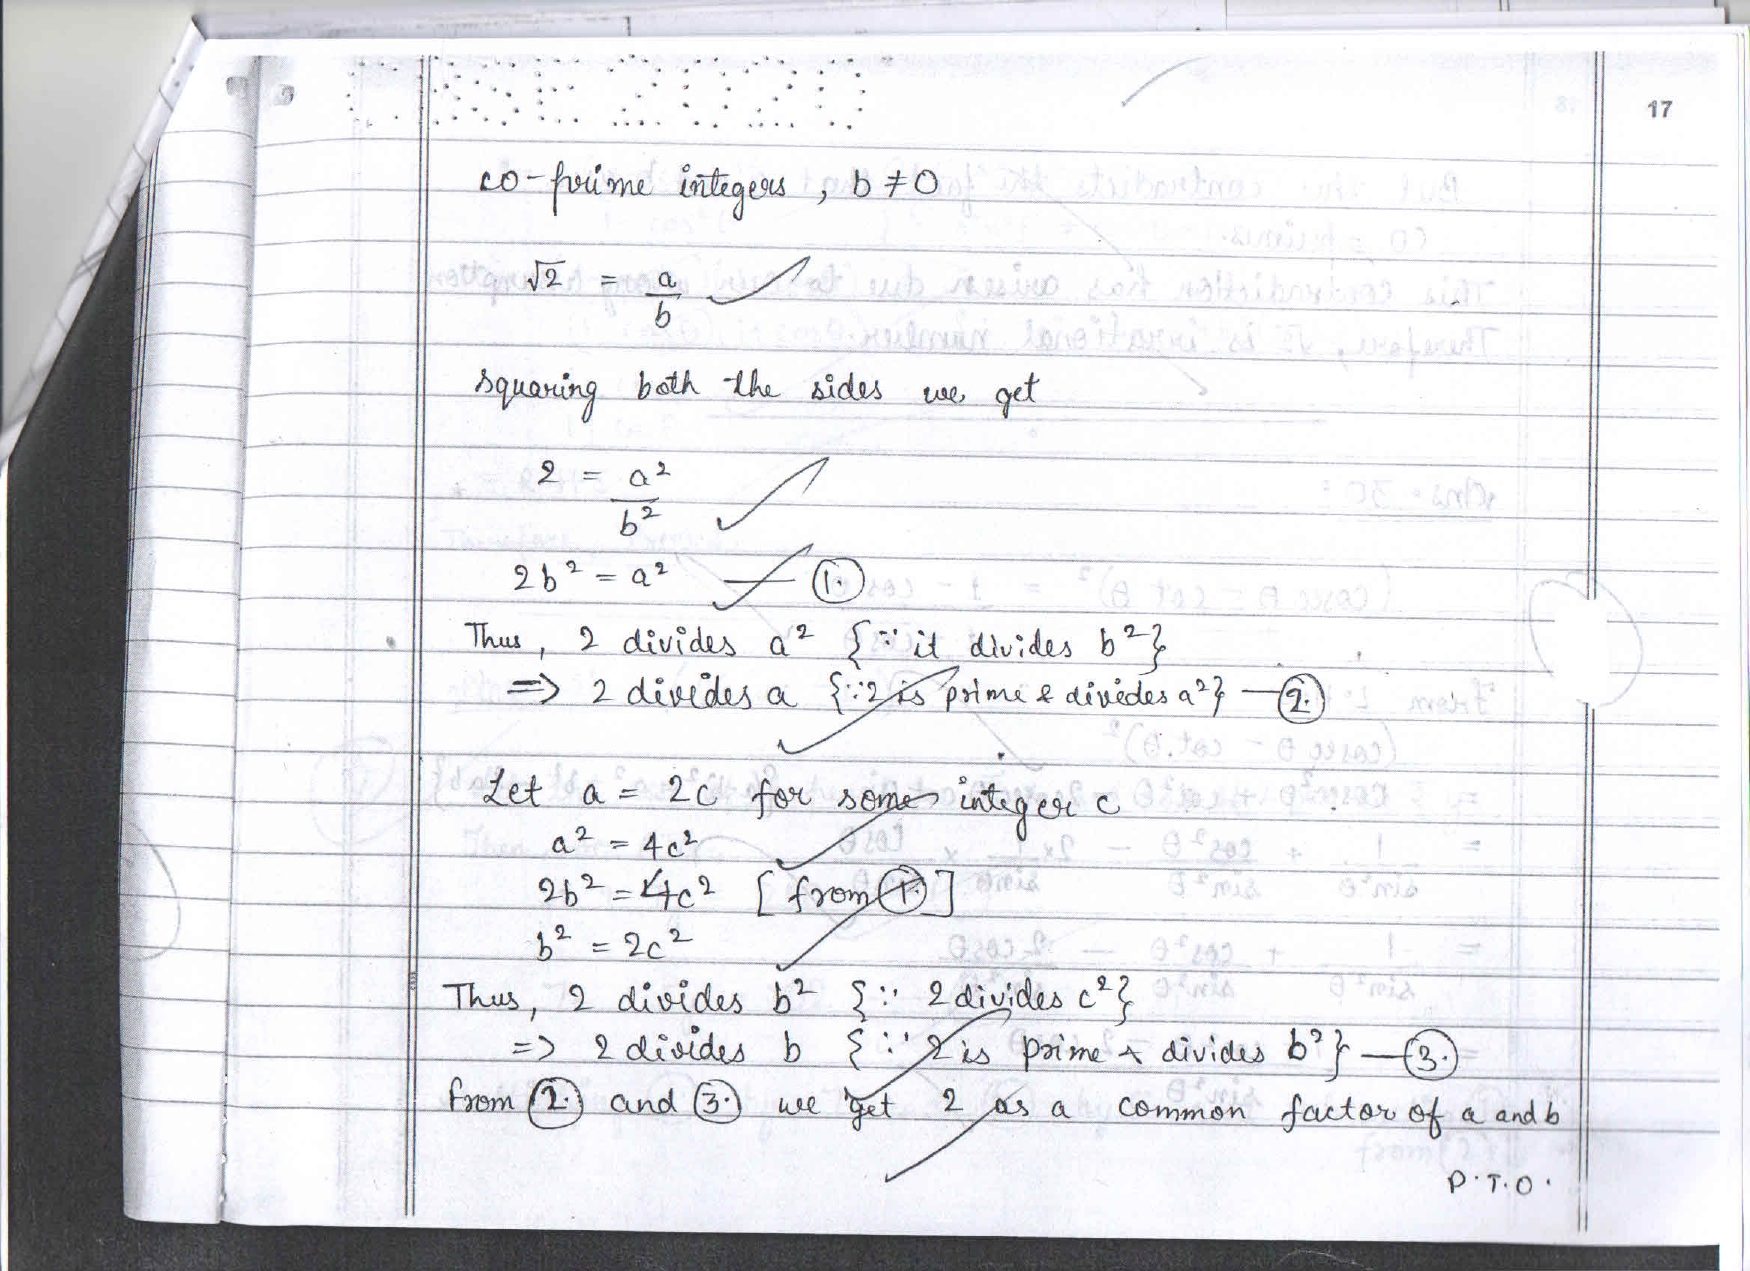 17
co-prime integers, b ≠ 0
√2 = a/b
Squaring both the sides we get
2 = a²/b²
2b² = a² — ①.
Thus, 2 divides a² {∵ it divides b²}
=> 2 divides a {∵ 2 is prime & divides a²} — ②.
Let a = 2c for some integer c
a² = 4c²
2b² = 4c² [from ①]
b² = 2c²
Thus, 2 divides b² {∵ 2 divides c²}
=> 2 divides b {∵ 2 is prime & divides b²} — ③.
from ②. and ③. we get 2 as a common factor of a and b
P.T.O.